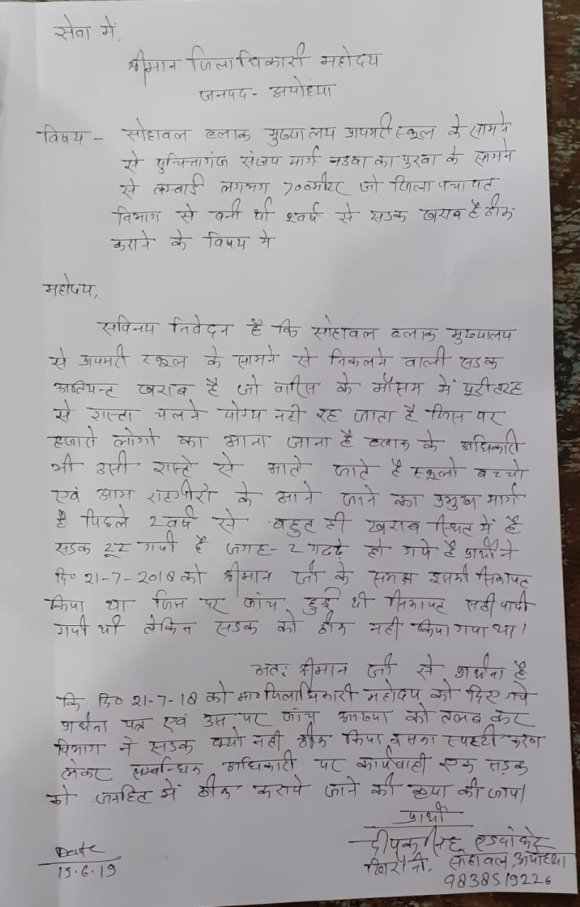 सेवा में,
श्रीमान जिलाधिकारी महोदय
जनपद- अयोध्या
विषय - सोहावल ब्लाक मुख्यालय प्राथमरी स्कूल के सामने
से मार्ग का पुरवा के सामने
से लम्बाई लगभग 700मीटर जो जिला पंचायत
विभाग से बनी थी २वर्ष से सडक खराब है ठीक
कराने के विषय मे
महोदय,
सविनय निवेदन है कि सोहावल ब्लाक मुख्यालय
से प्राथमरी स्कूल के सामने से निकलने वाली सडक
अत्यिन्त खराब है जो बारिस के मौसम में पूरी तरह
से रास्ता चलने योग्य नही रह जाता है जिस पर
हजारो लोगो का आना जाना है ब्लाक के अधिकारी
भी उसी रास्ते से आते जाते है स्कूलो बच्चो
एवं आम राहगीरो के आने जाने का प्रमुख मार्ग
है पिछले 2 वर्ष से बहुत ही खराब स्थित में है
सडक टूट गयी है जगह- 2 गढढे हो गये है प्रार्थी ने
दि० 21-7-2018 को श्रीमान जी के समक्ष इसकी सिकायत
किया था जिस पर जांच हुई थी सिकायत सही पायी
गयी थी लेकिन सडक को ठीक नही किया गया था।
अतः श्रीमान जी से प्रार्थना है
कि दि० 21-7-18 को मा० जिलाधिकारी महोदय को दिए गये
प्रार्थना पत्र एवं उस पर जांच आख्या को तलब कर
विभाग ने सडक क्यो नही ठीक किया इसका स्पष्टी करण
लेकर सम्बन्धित अधिकारी पर कार्यवाही एवं सडक
को जनहित में ठीक कराये जाने की कृपा की जाय।
प्रार्थी
दीपक सिंह एडवोकेट
Date सोहावल, अयोध्या
15.6.19 9838519226